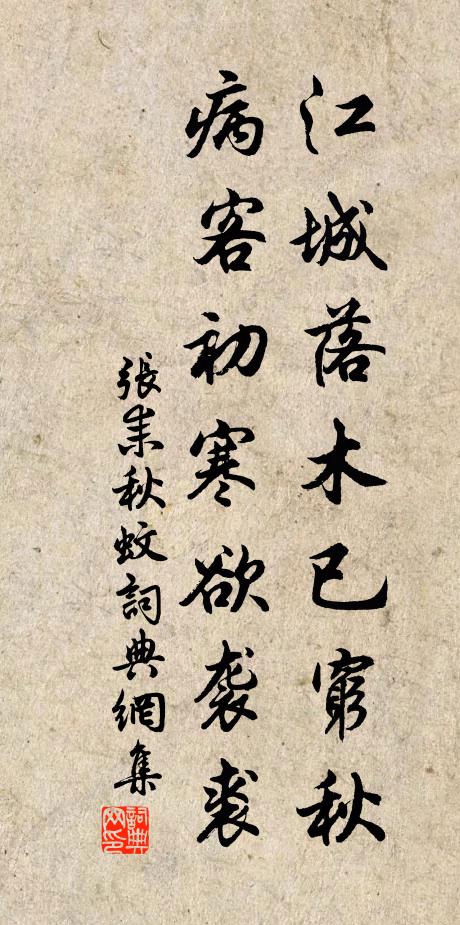 江城落木已窮秋
病客初寒欲袭裘
張耒秋蚊詞典網集
詞典
网印